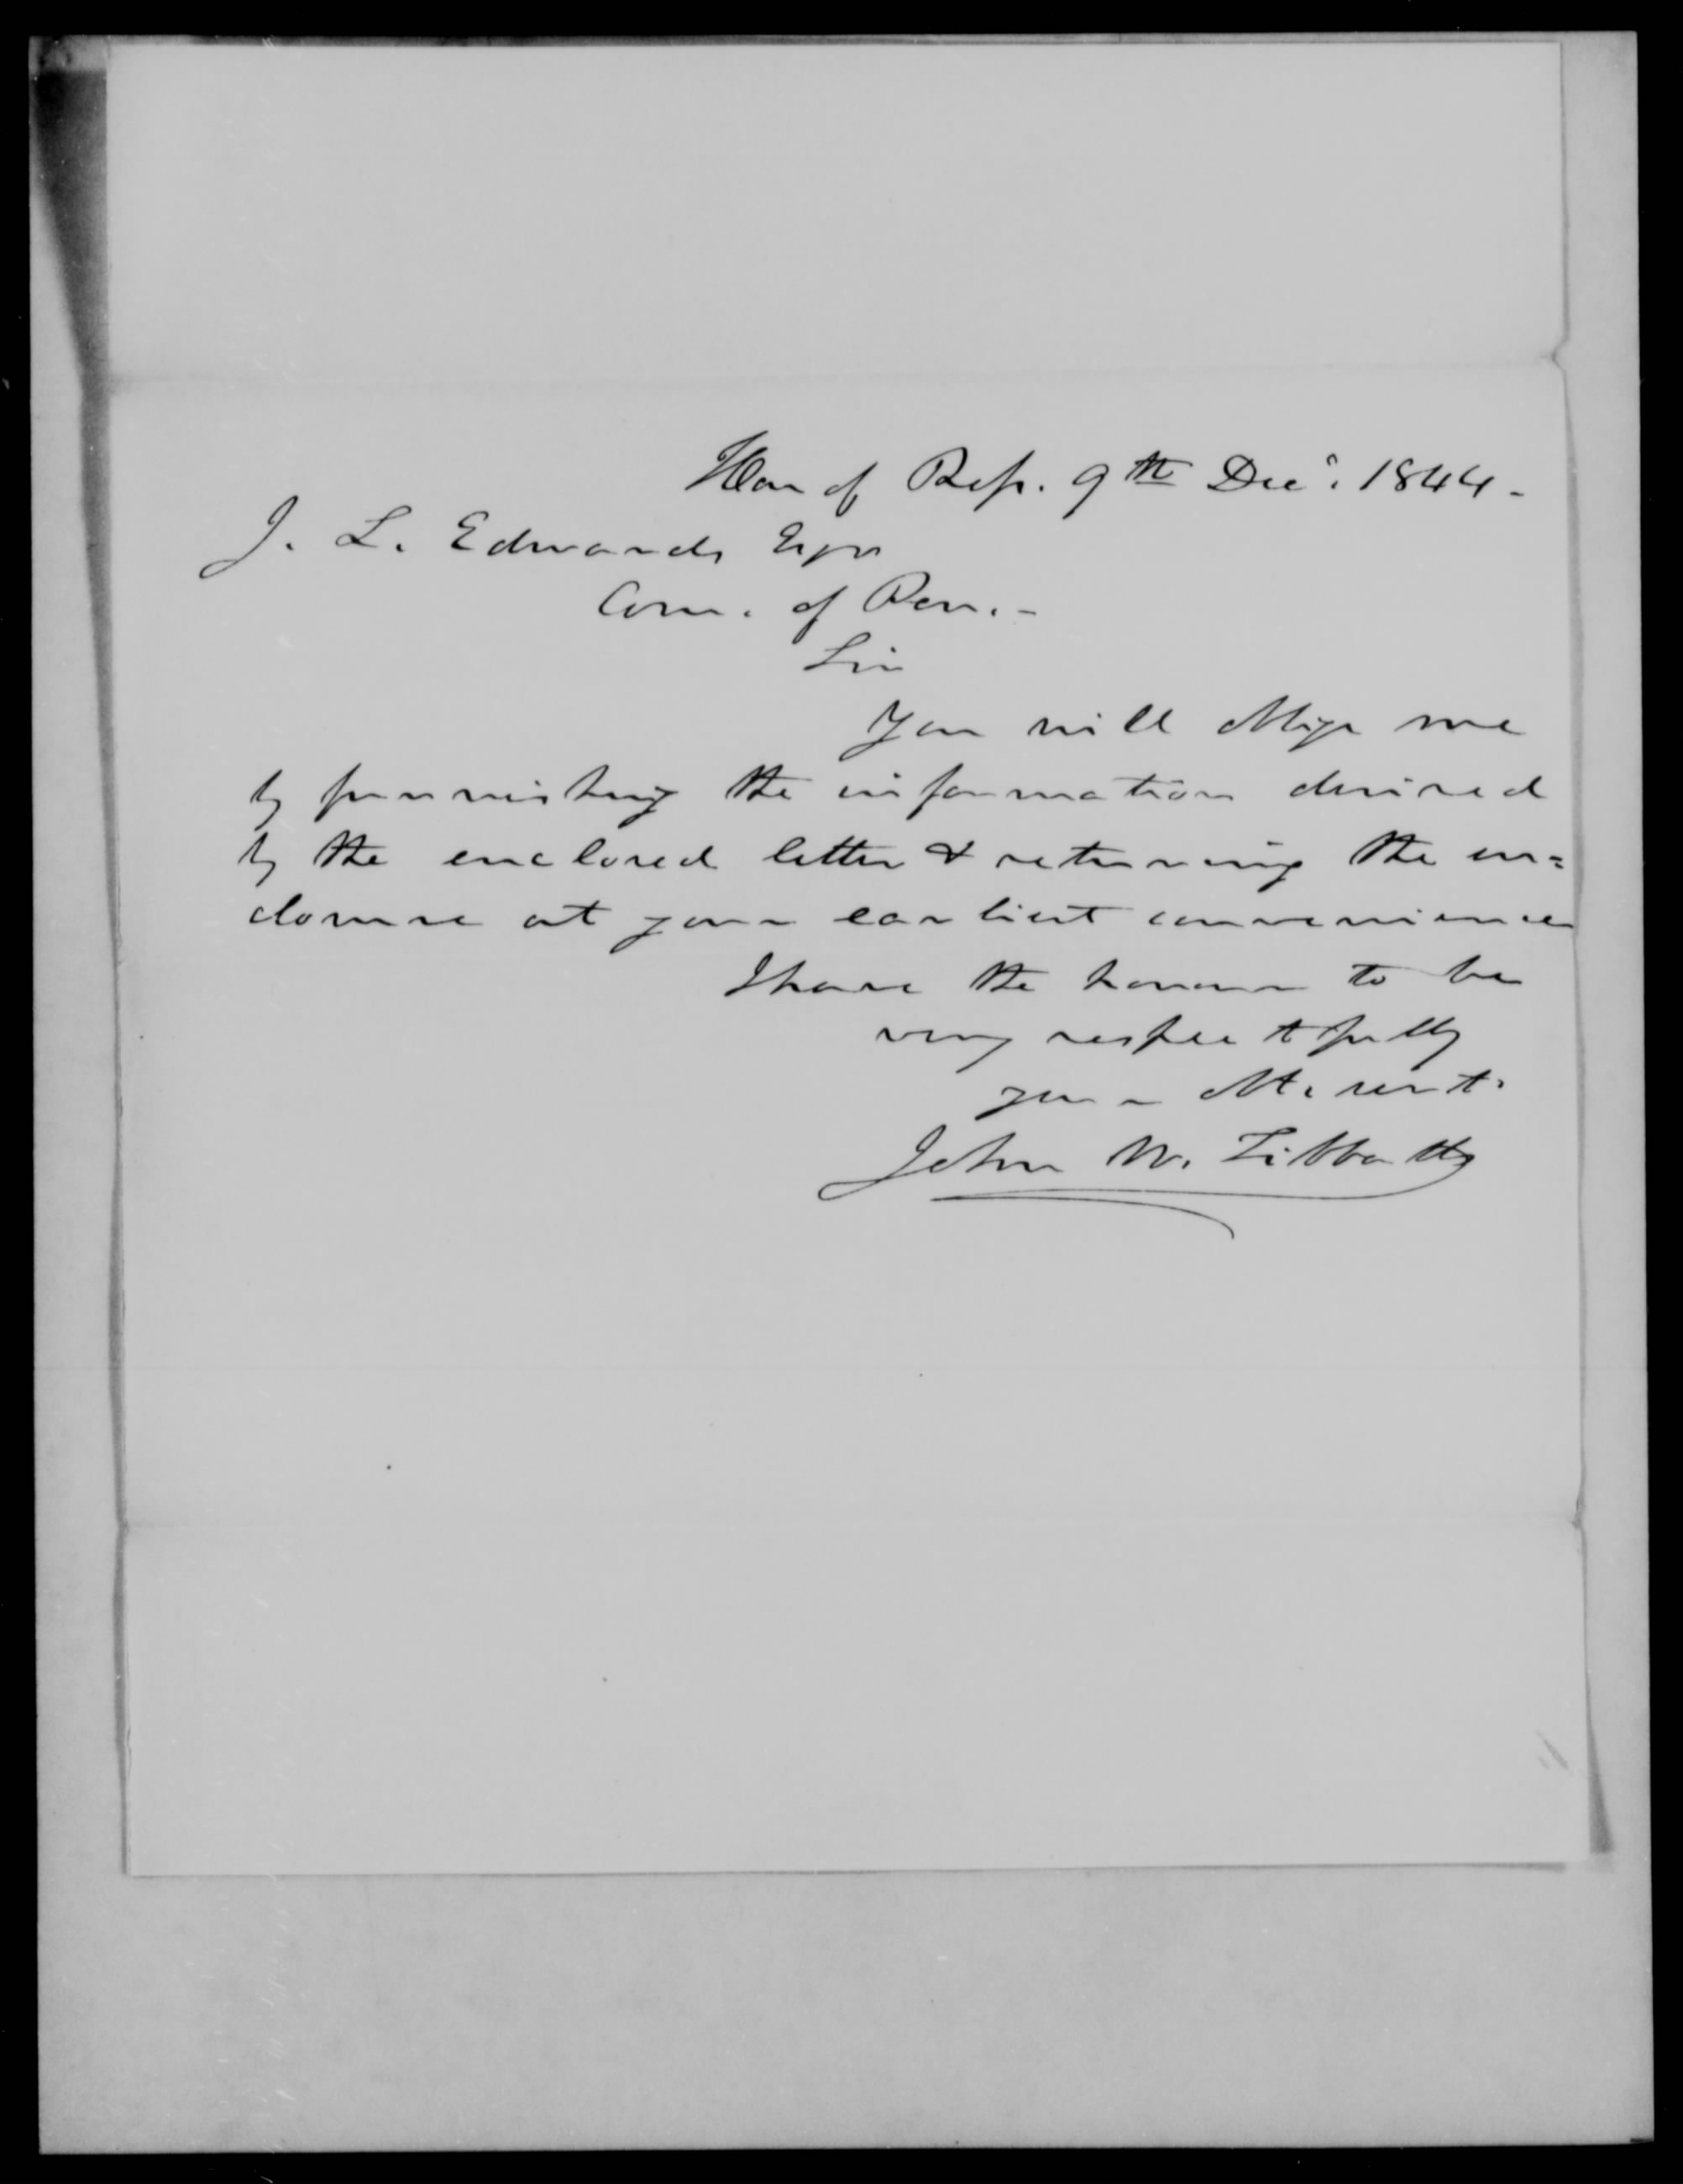 Ho. of Rep. 9th Dec. 1844.
J. L. Edwards Esqr
Com. of Pen.
Sir
You will oblige me
by furnishing the information desired
by the enclosed letter & returning the en=
closure at your earliest convenience
I have the honour to be
very respectfully
your Obt. servt.
John W. Tibbatts